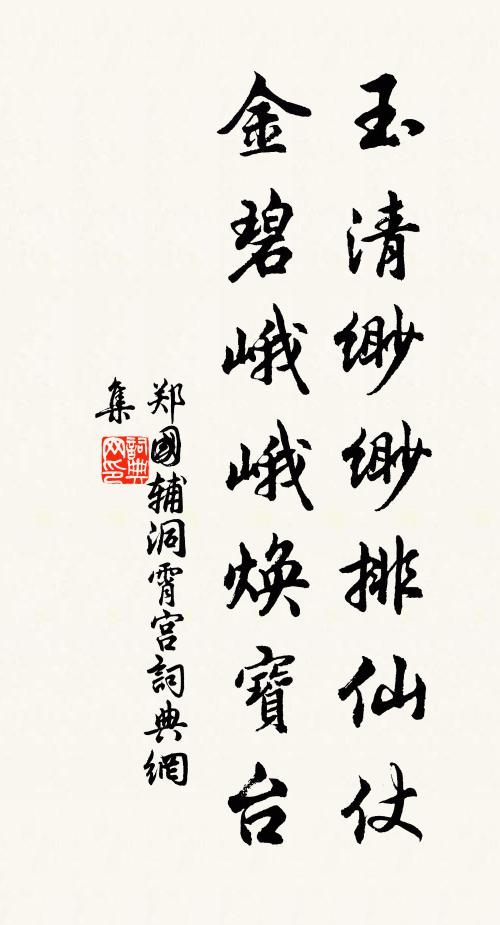 玉清缈缈排仙仗
金碧峨峨焕寶台
郑國辅洞霄宫詞典網
集
詞典网印